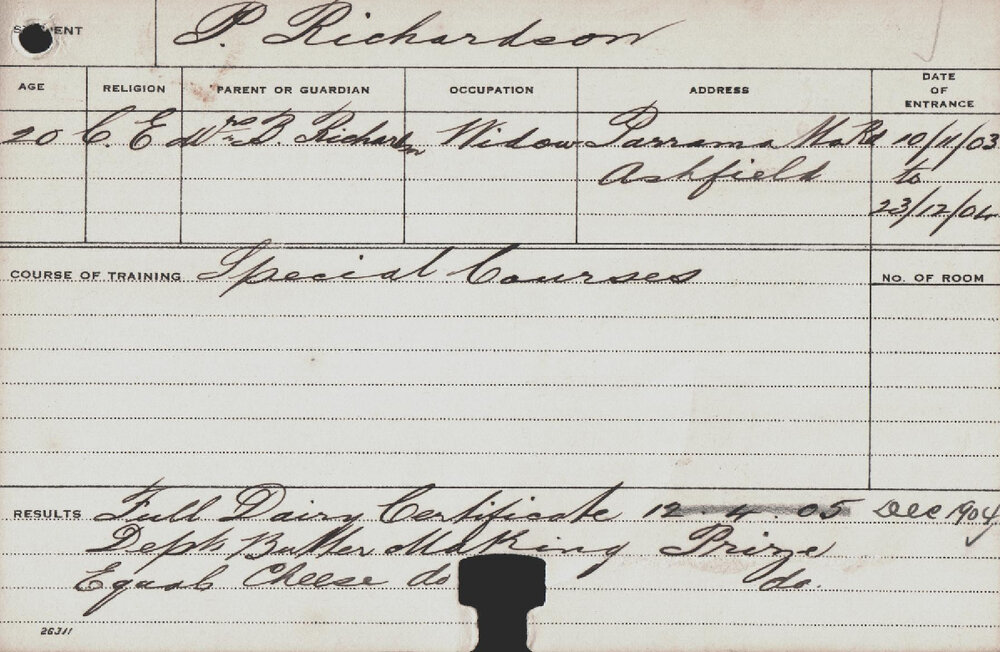 STUDENT P. Richardson
AGE RELIGION PARENT OR GUARDIAN OCCUPATION ADDRESS DATE OF ENTRANCE
20 C. E Mrs B. Richardson Widow Parrama Ma Rd 10/11/03
Ashfield to
23/12/04
COURSE OF TRAINING Special Courses NO. OF ROOM
RESULTS Full Dairy Certificate 12. 4. 05 Dec 1904
Depts Butter Making Prize
Equal Cheese do do.
26311